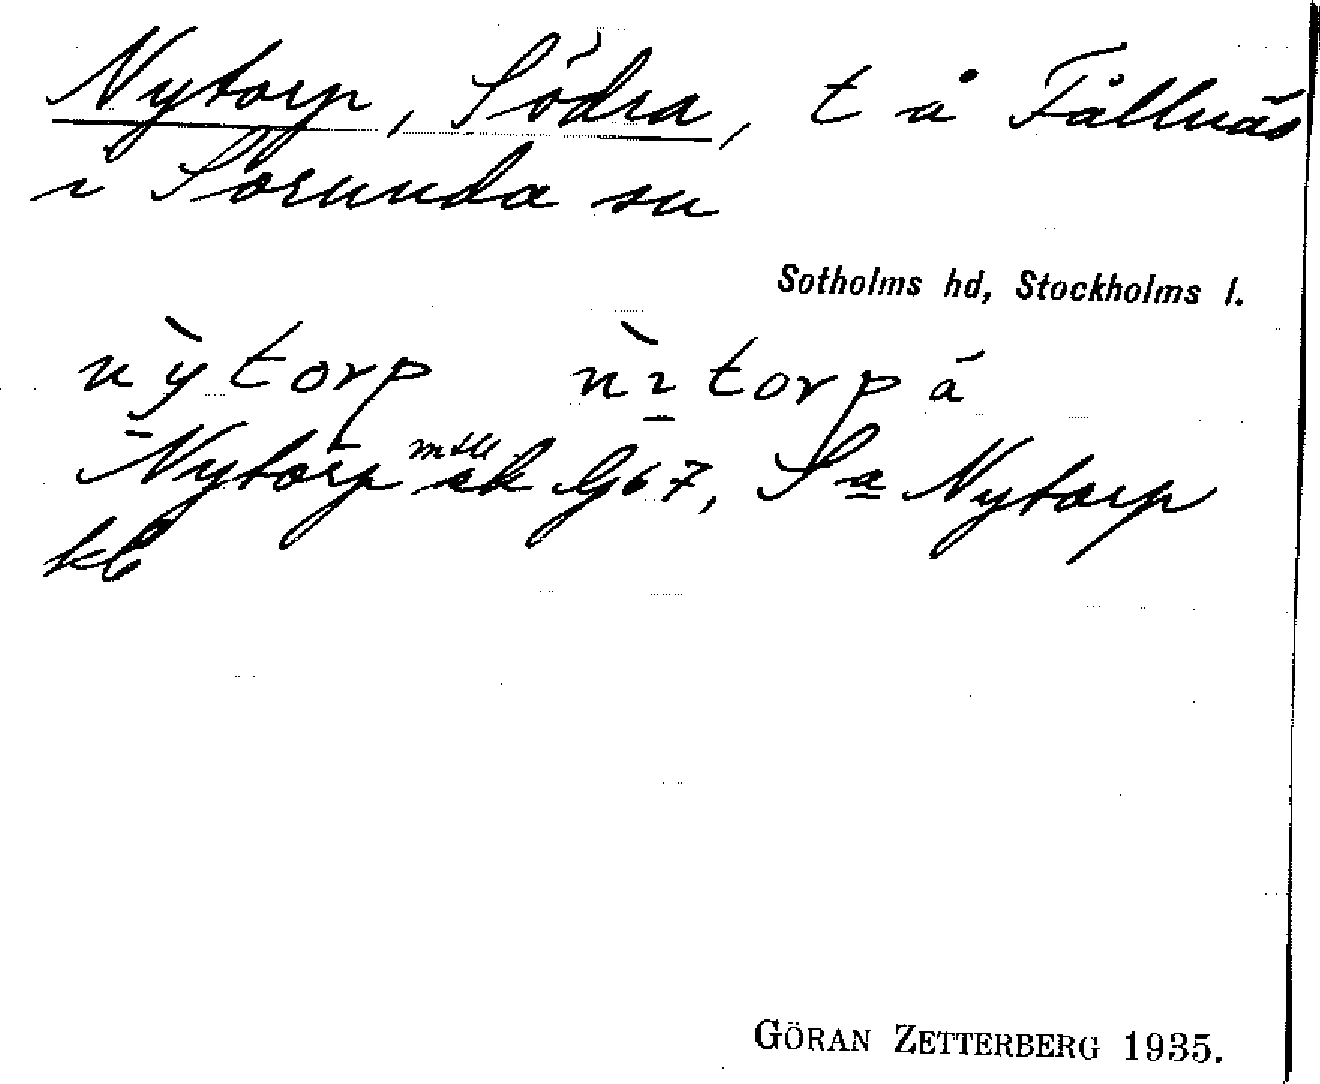 Nytorp, Södra, t å Fållnäs
i Sorunda sn
Sotholms hd, Stockholms l.
nỳtorp nìtorpá
Nytorp mtl ek G67, Sa Nytorp
kb
GÖRAN ZETTERBERG 1935.